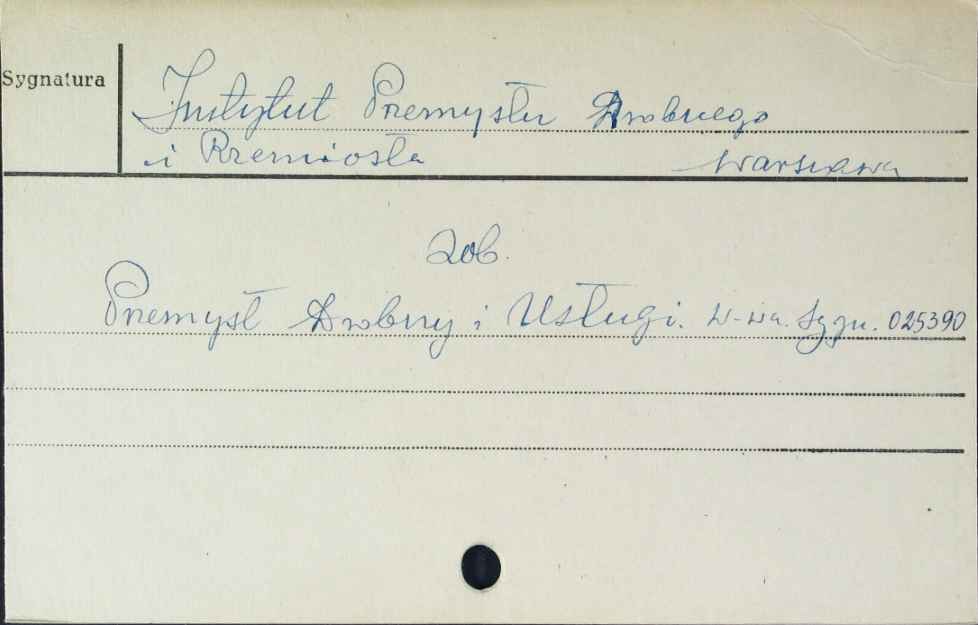 Sygnatura
Instytut Przemysłu Drobnego
i Rzemiosła Warszawa
Zob.
Przemysł Drobny i Usługi. W-wa. Sygn. 025390